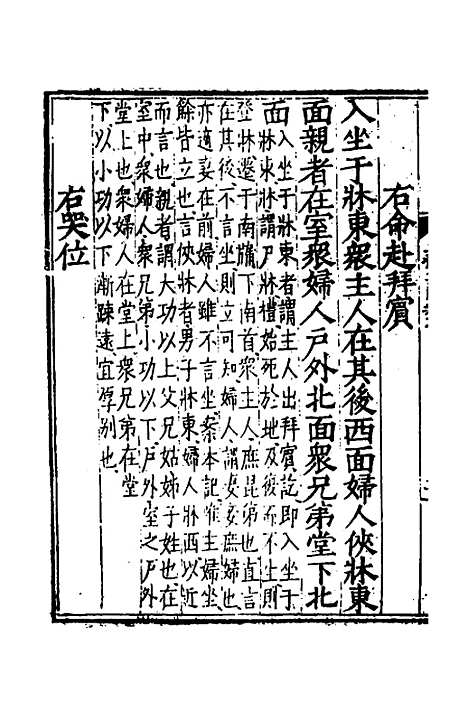 右命赴拜賓
入坐于牀東衆主人在其後西面婦人俠牀東
面親者在室衆婦人戶外北面衆兄弟堂下北
面
入坐于牀東者謂主人出拜賓訖即入坐于
牀東牀謂尸牀禮始死於地及復而不生則
登牀遷于南牖下南首衆主人庶昆弟也直言
在其後不言坐則立可知婦人謂妻妾庶婦也
亦適妻在前婦人雖不言坐案本記惟主婦坐
餘皆立也言俠牀者男子牀東婦人牀西以近
而言也親者謂大功以上父兄姑姊子姓也在
室中衆婦人衆兄弟小功以下戶外室之戶外
堂上也衆婦人在堂上衆兄弟在堂
下以小功以下漸踈遠宜厚別也
右哭位